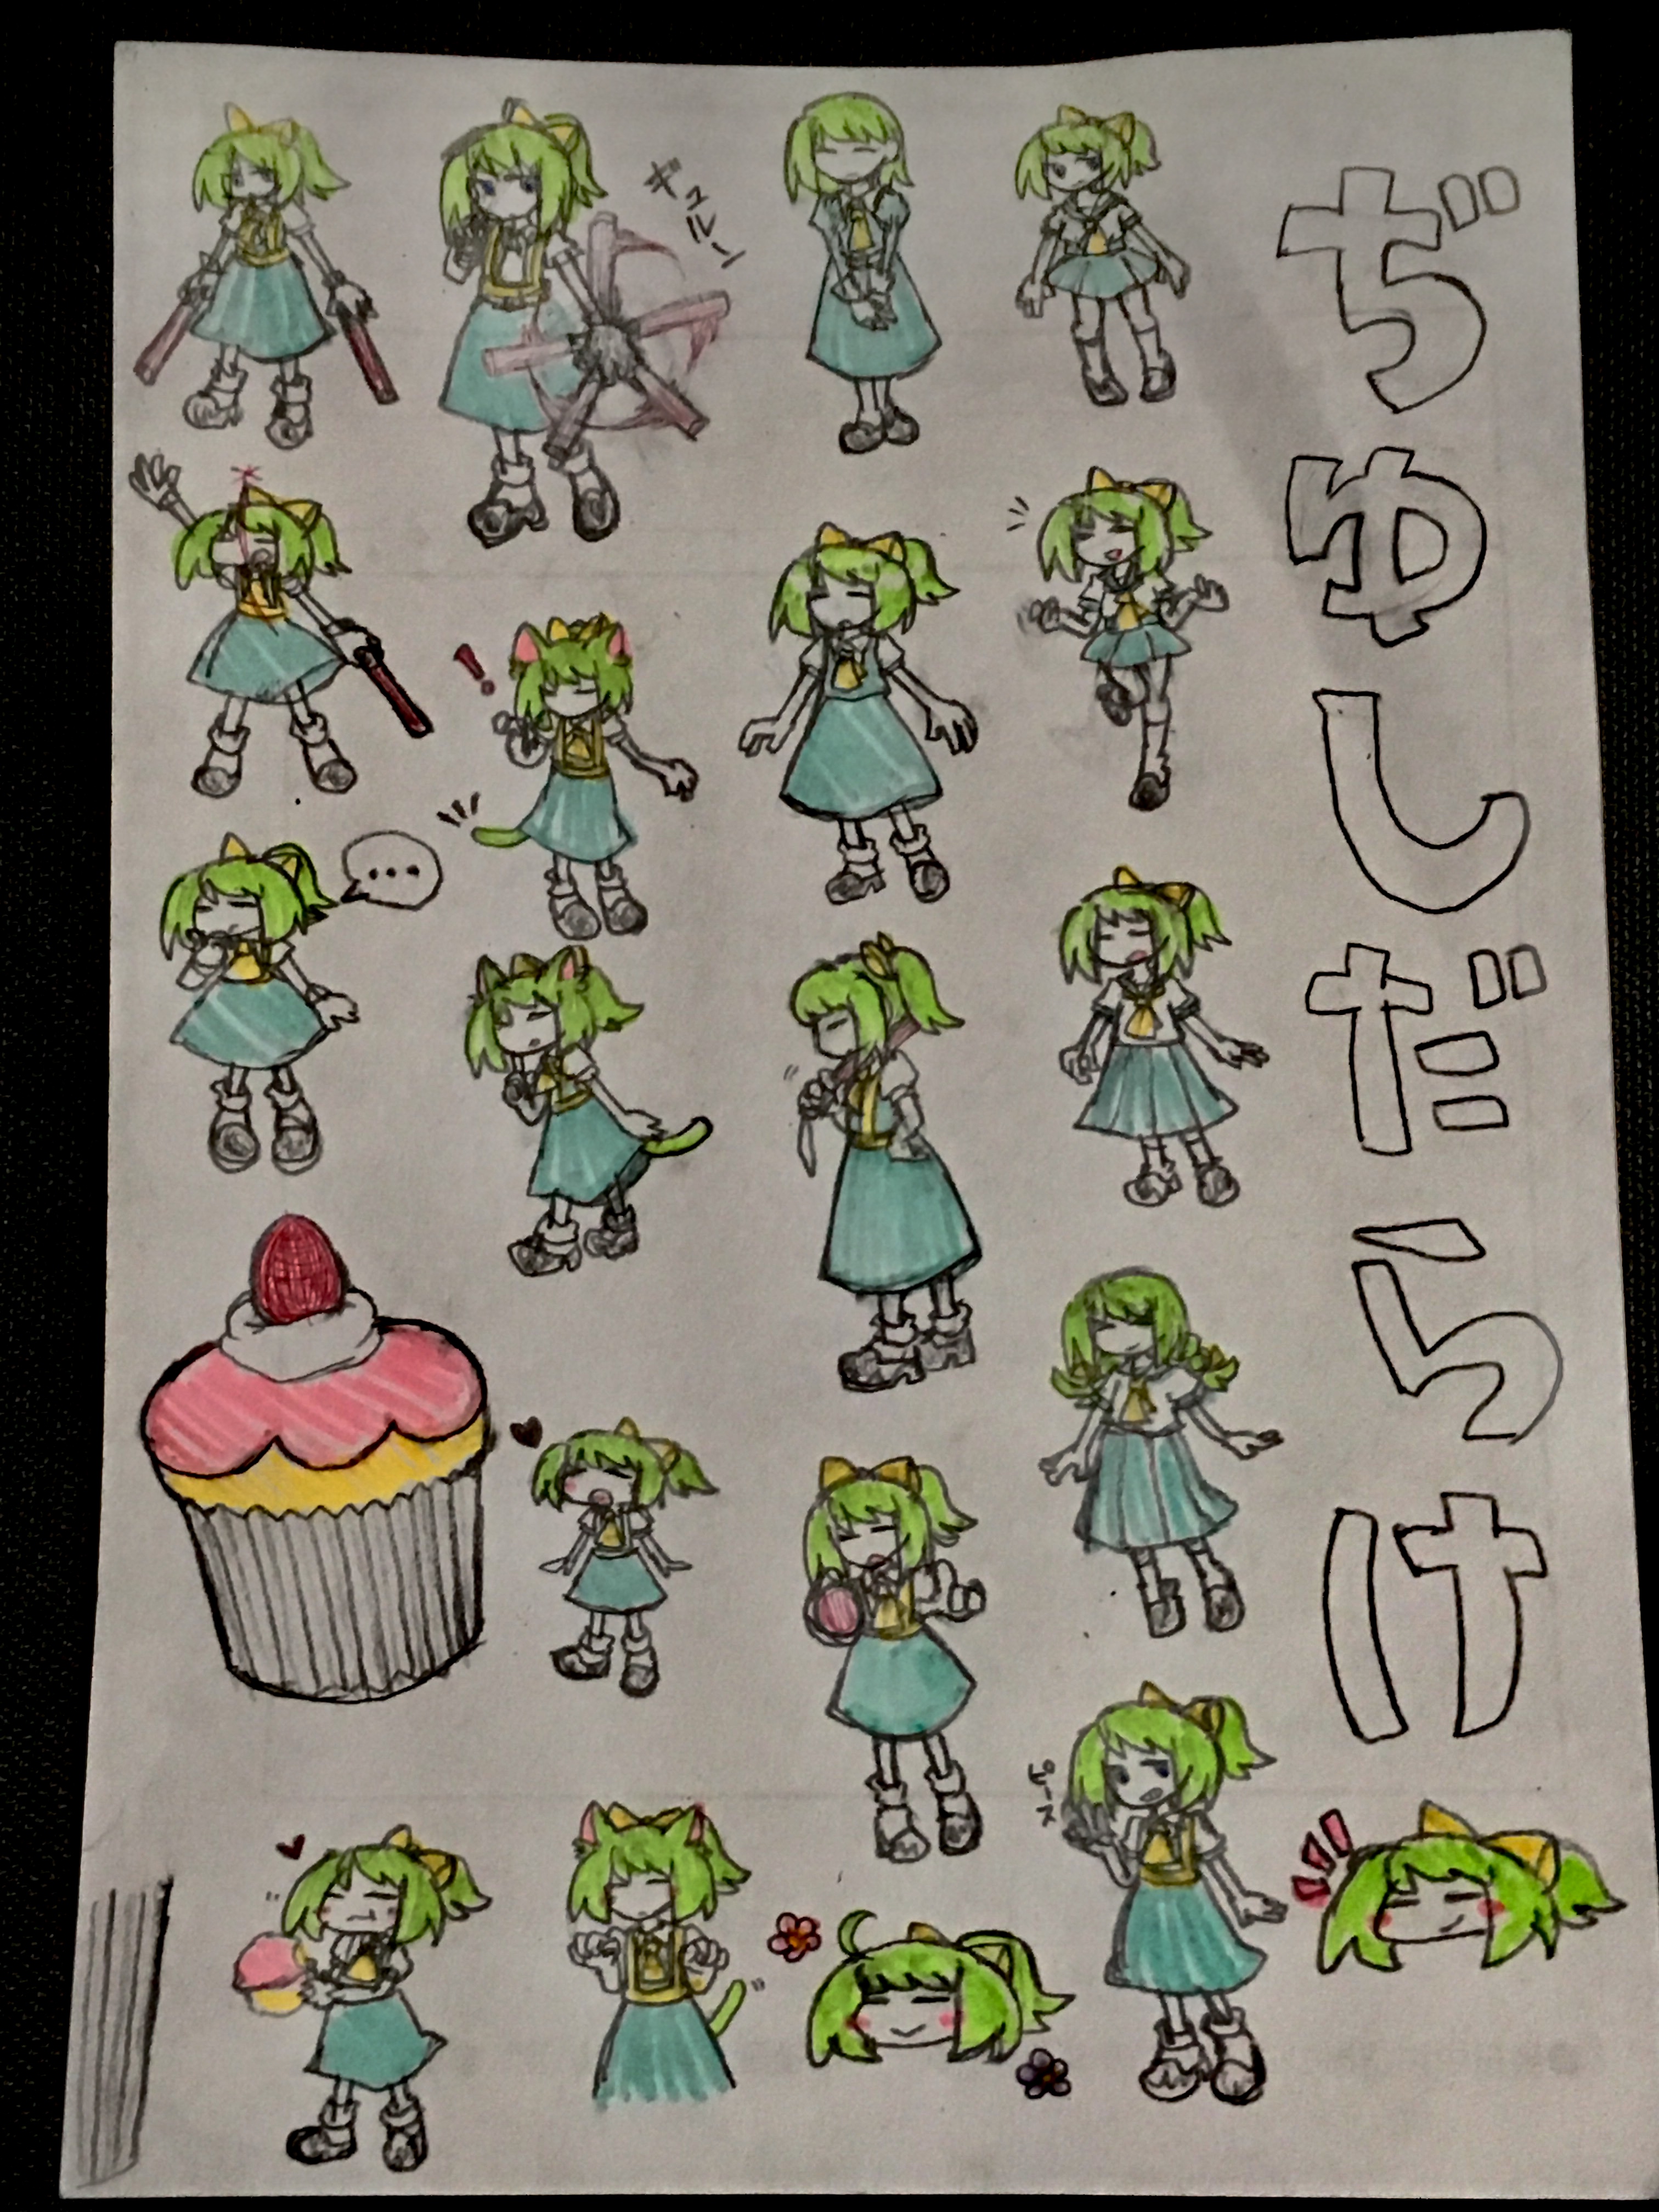 ぢゅしだらけ
ギュルン
!
...
ピース